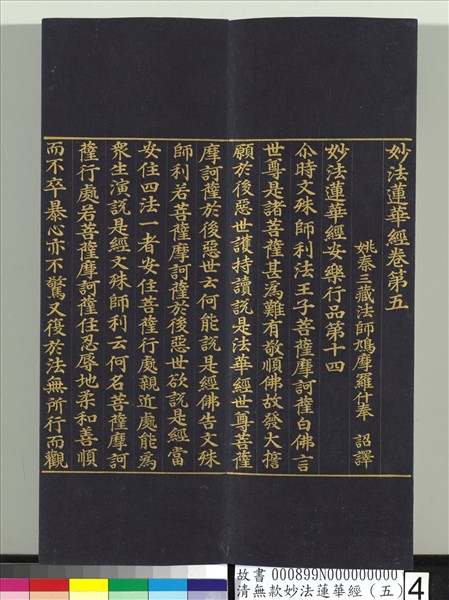 妙法蓮華經卷第五
姚秦三藏法師鳩摩羅什奉 詔譯
妙法蓮華經安樂行品第十四
尒時文殊師利法王子菩薩摩訶薩白佛言
世尊是諸菩薩甚為難有敬順佛故發大擔
願於後惡世護持讀說是法華經世尊菩薩
摩訶薩於後惡世云何能說是經佛告文殊
師利若菩薩摩訶薩於後惡世欲說是經當
安住四法一者安住菩薩行處親近處能為
眾生演說是經文殊師利云何名菩薩摩訶
薩行處若菩薩摩訶薩住忍辱地柔和善順
而不卒暴心亦不驚又復於法無所行而觀
故書 000899N000000000
清無款妙法蓮華經(五)
4